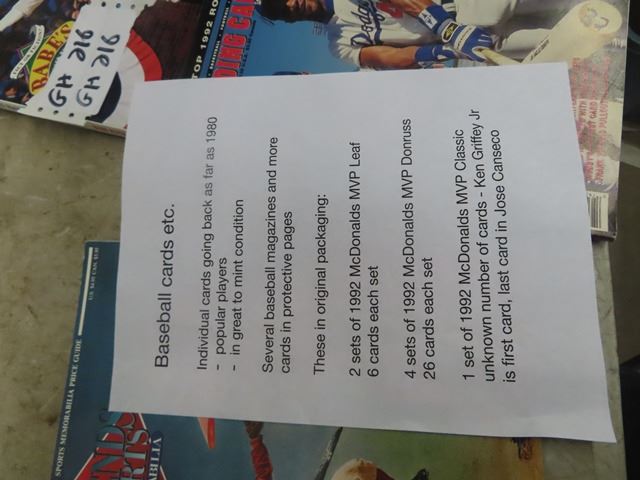 GH 216
GH 216
TOP 1992 RO
Dodge
SPORTS MEMORABILIA PRICE GUIDE
Baseball cards etc.
Individual cards going back as far as 1980
- popular players
- in great to mint condition
Several baseball magazines and more
cards in protective pages
These in original packaging:
2 sets of 1992 McDonalds MVP Leaf
6 cards each set
4 sets of 1992 McDonalds MVP Donruss
26 cards each set
1 set of 1992 McDonalds MVP Classic
unknown number of cards - Ken Griffey Jr
is first card, last card in Jose Canseco